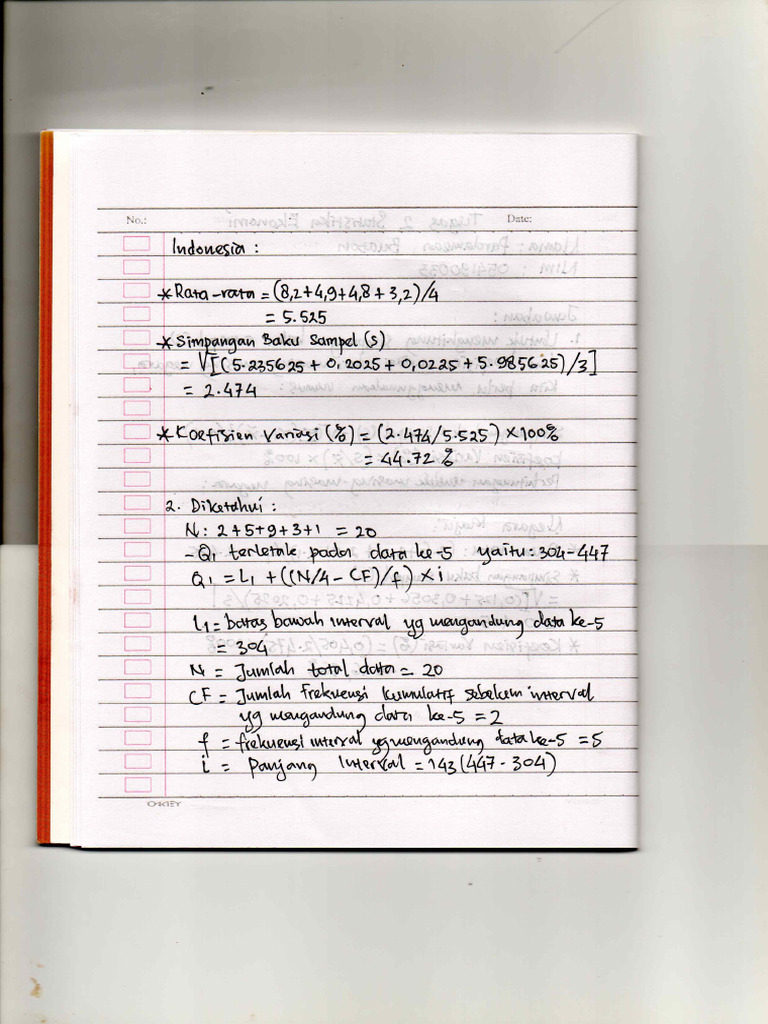 No.: Date:
Indonesia :
* Rata-rata = (8,2+4,9+4,8+3,2)/4
= 5.525
* Simpangan Baku Sampel (s)
= √[(5.235625 + 0,2025 + 0,0225 + 5.985625)/3]
= 2.474
* Koefisien Variasi (%) = (2.474/5.525) × 100%
= 44.72 %
2. Diketahui :
N : 2+5+9+3+1 = 20
- Q1 terletak pada data ke-5 yaitu : 304-447
Q1 = L1 + ((N/4 - CF)/f) × i
L1 = batas bawah interval yg mengandung data ke-5
= 304
N = Jumlah total data = 20
CF = Jumlah frekuensi kumulatif sebelum interval
yg mengandung data ke-5 = 2
f = frekuensi interval yg mengandung data ke-5 = 5
i = Panjang Interval = 143 (447 - 304)